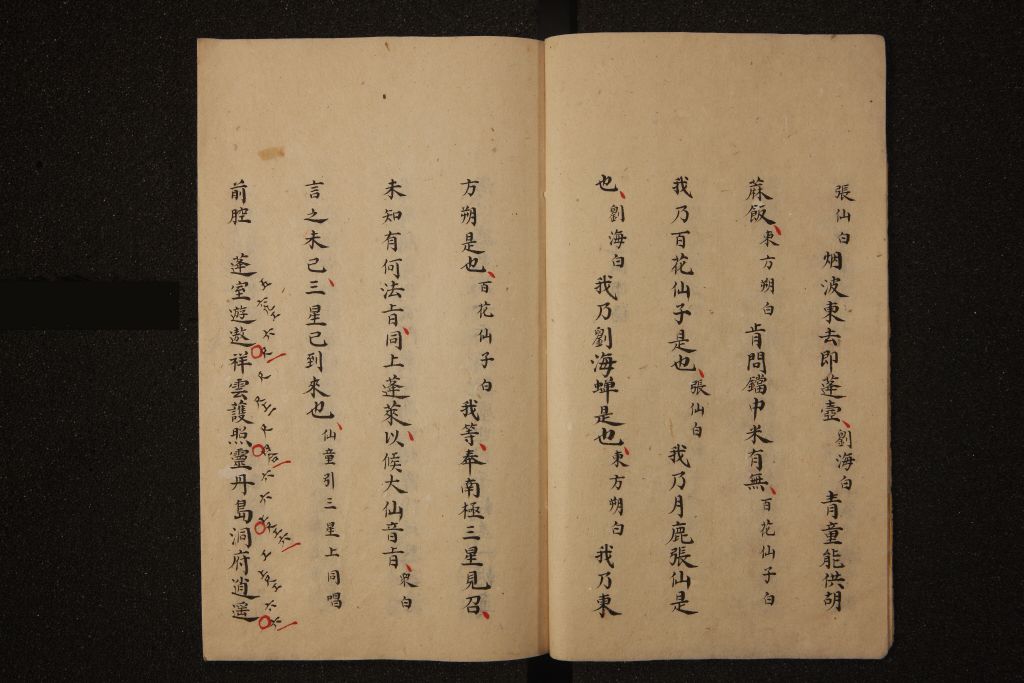 張仙白 烟波東去即蓬壺、劉海白 青童能供胡
蔴飯、東方朔白 肯問鐺中米有無、百花仙子白
我乃百花仙子是也、張仙白 我乃月鹿張仙是
也、劉海白 我乃劉海蟬是也、東方朔白 我乃東
方朔是也、百花仙子白 我等、奉南極三星見召、
未知有何法旨、同上蓬萊、以候大仙音旨、衆白
言之未已、三星已到來也、仙童引三星上同唱
前腔 蓬室遊遨祥雲護照靈丹島洞府逍遥